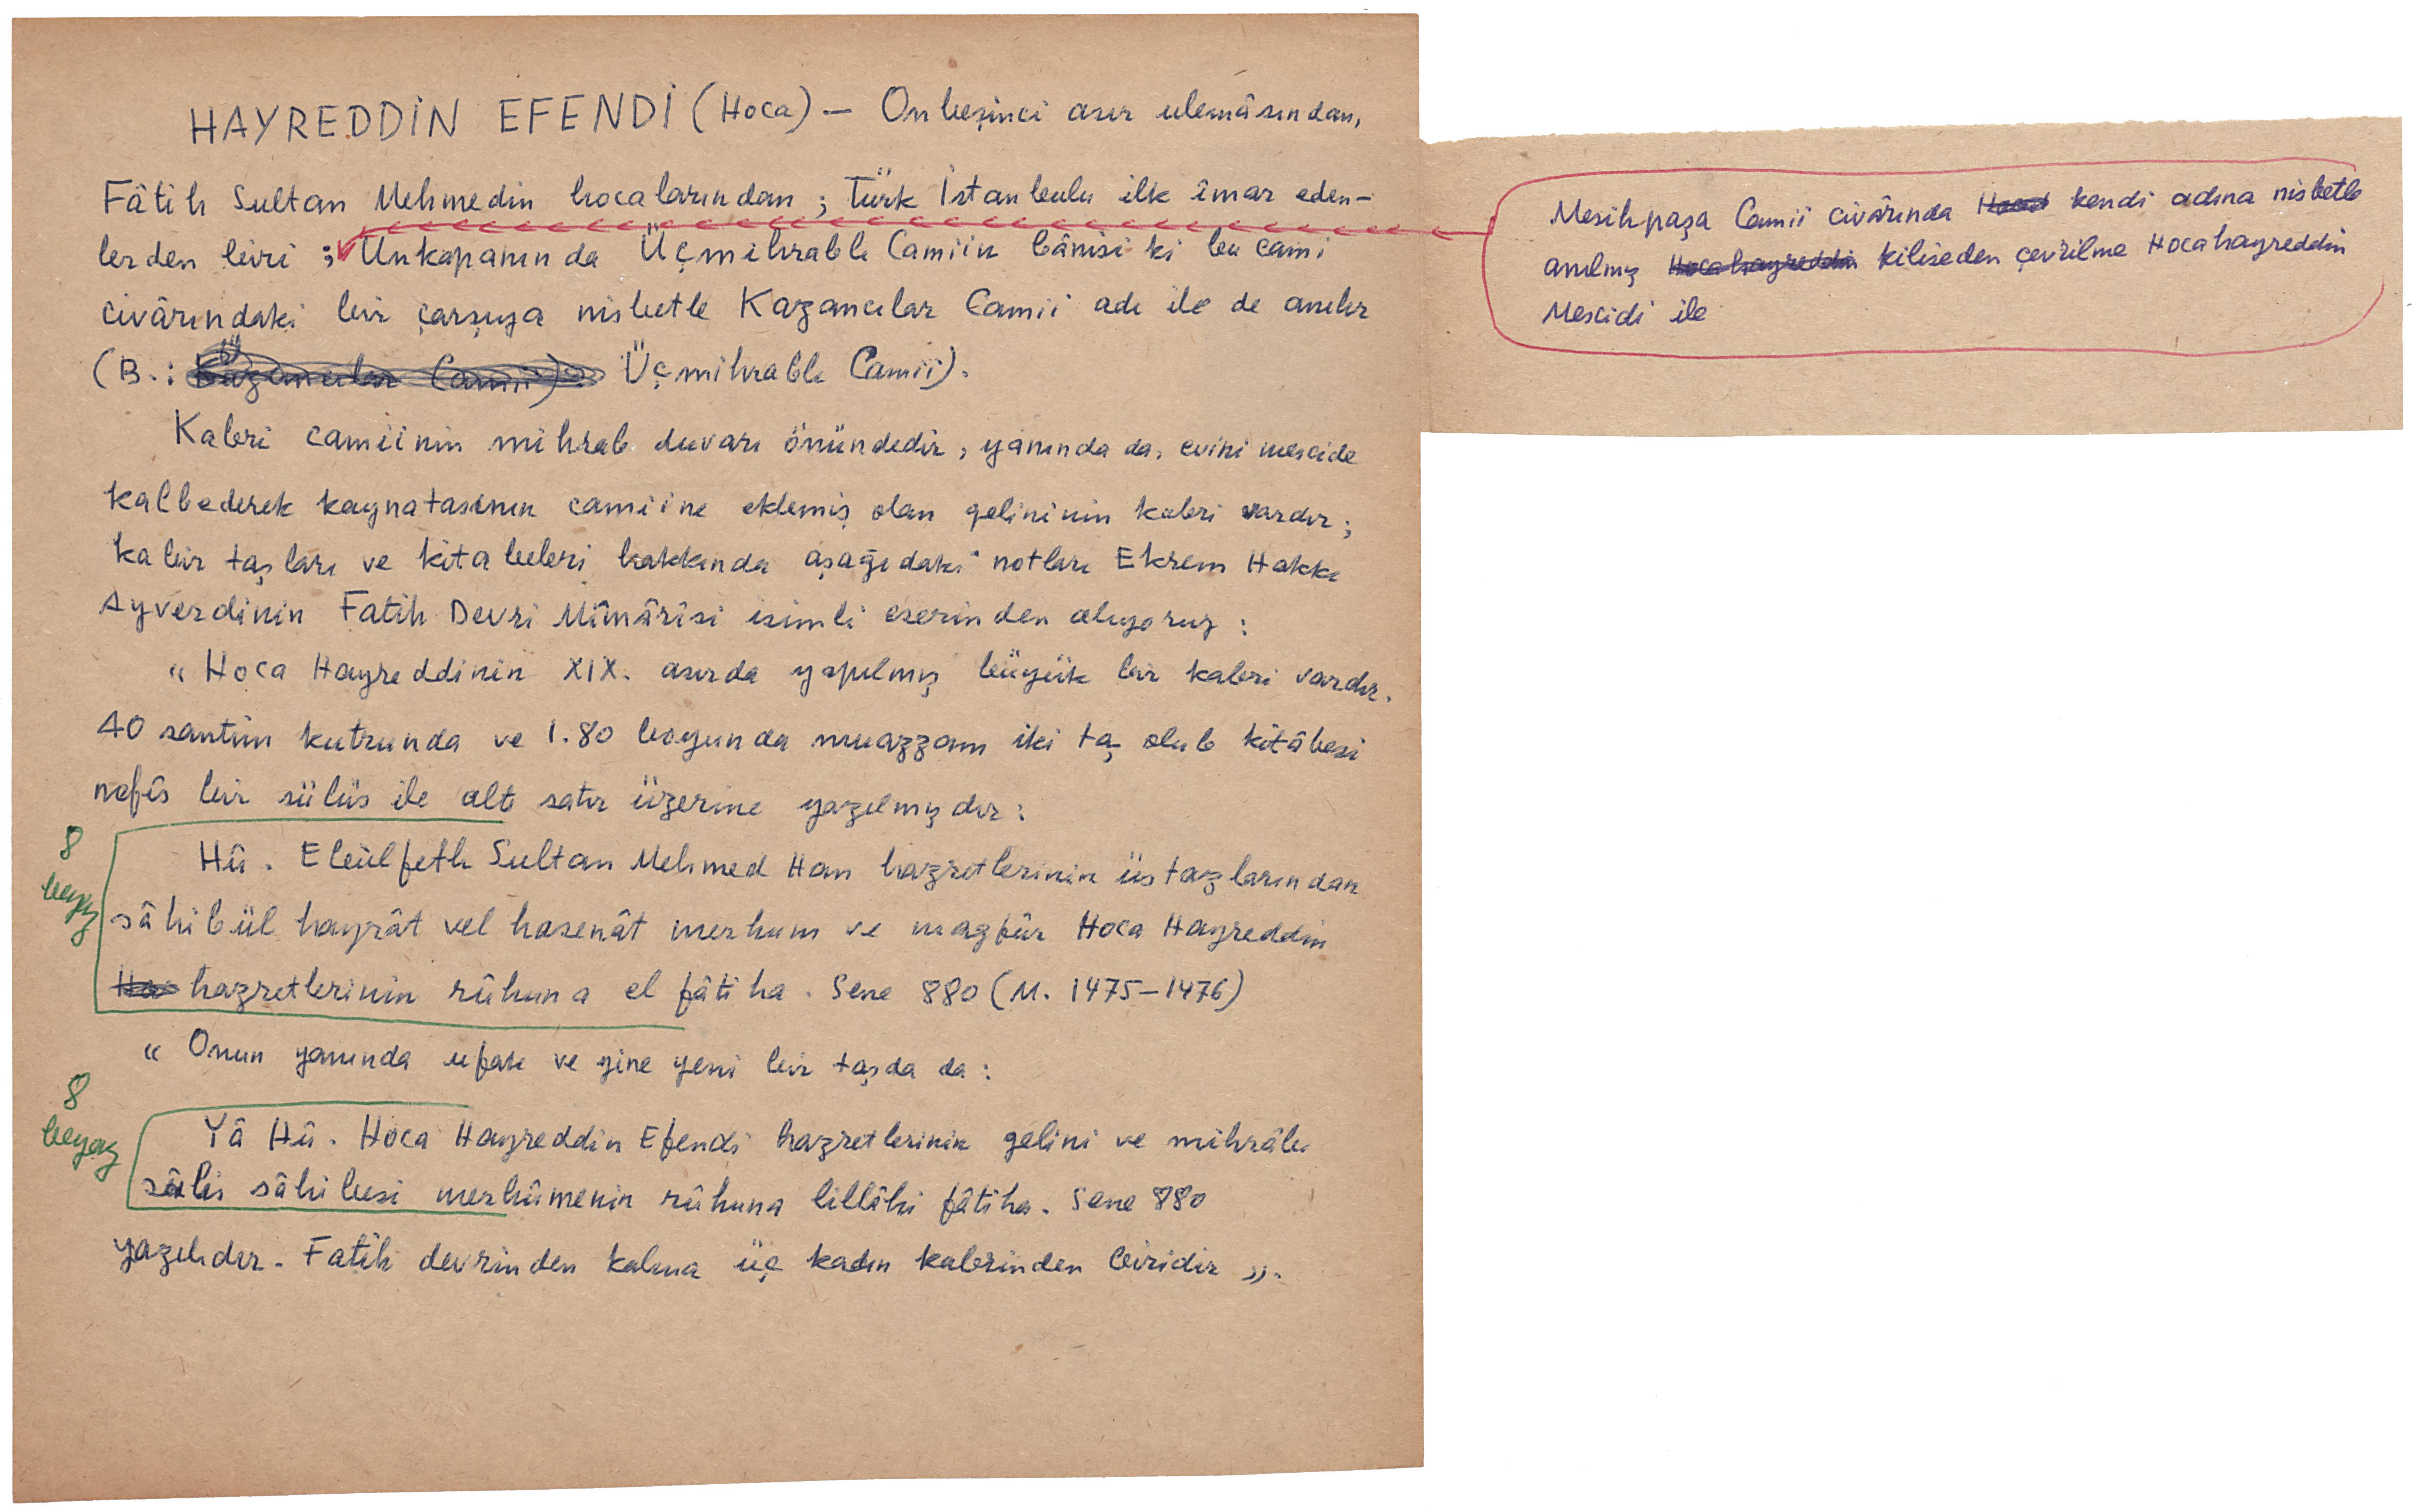 HAYREDDİN EFENDİ (Hoca) — Onbeşinci asır ulemâsından,
Fâtih Sultan Mehmedin hocalarından; Türk İstanbulu ilk îmar eden-
lerden biri; Unkapanında Üçmihrablı Camiin bânisi ki bu cami
civârındaki bir çarşuya nisbetle Kazancılar Camii adı ile de anılır
(B.: Kazancılar Camii). Üçmihrablı Camii).
Kabri camiinin mihrab duvarı önündedir, yanında da, evini mescide
kalbederek kaynatasının camiine eklemiş olan gelininin kabri vardır;
kabir taşları ve kitabeleri hakkında aşağıdaki notları Ekrem Hakkı
Ayverdinin Fatih Devri Mîmârîsi isimli eserinden alıyoruz:
"Hoca Hayreddinin XIX. asırda yapılmış büyük bir kabri vardır.
40 santim kutrunda ve 1.80 boyunda muazzam iki taş olub kitâbesi
nefîs bir sülüs ile altı satır üzerine yazılmışdır:
8
beyaz
Hû. Ebülfeth Sultan Mehmed Han hazretlerinin üstazlarından
sâhibül hayrât vel hasenât merhum ve magfûr Hoca Hayreddin
Ha hazretlerinin rûhuna el fâtiha. Sene 880 (M. 1475–1476)
"Onun yanında ufak ve yine yeni bir taşda da:
8
beyaz
Yâ Hû. Hoca Hayreddin Efendi hazretlerinin gelini ve mihrâbı
sâlis sâhibesi merhûmenin rûhuna lillâhi fâtiha. Sene 880
yazılıdır. Fatih devrinden kalma üç kadın kabrinden biridir".
Mesihpaşa Camii civârında Hocad kendi adına nisbetle
anılmış Hocahayreddin kiliseden çevrilme Hocahayreddin
Mescidi ile